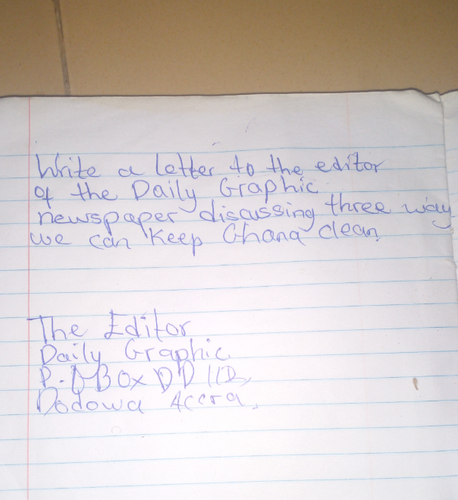 Write a letter to the editor
of the Daily Graphic
newspaper discussing three way
we can Keep Ghana clean.
The Editor
Daily Graphic
P.O BOx DD
Dodowa Accra.